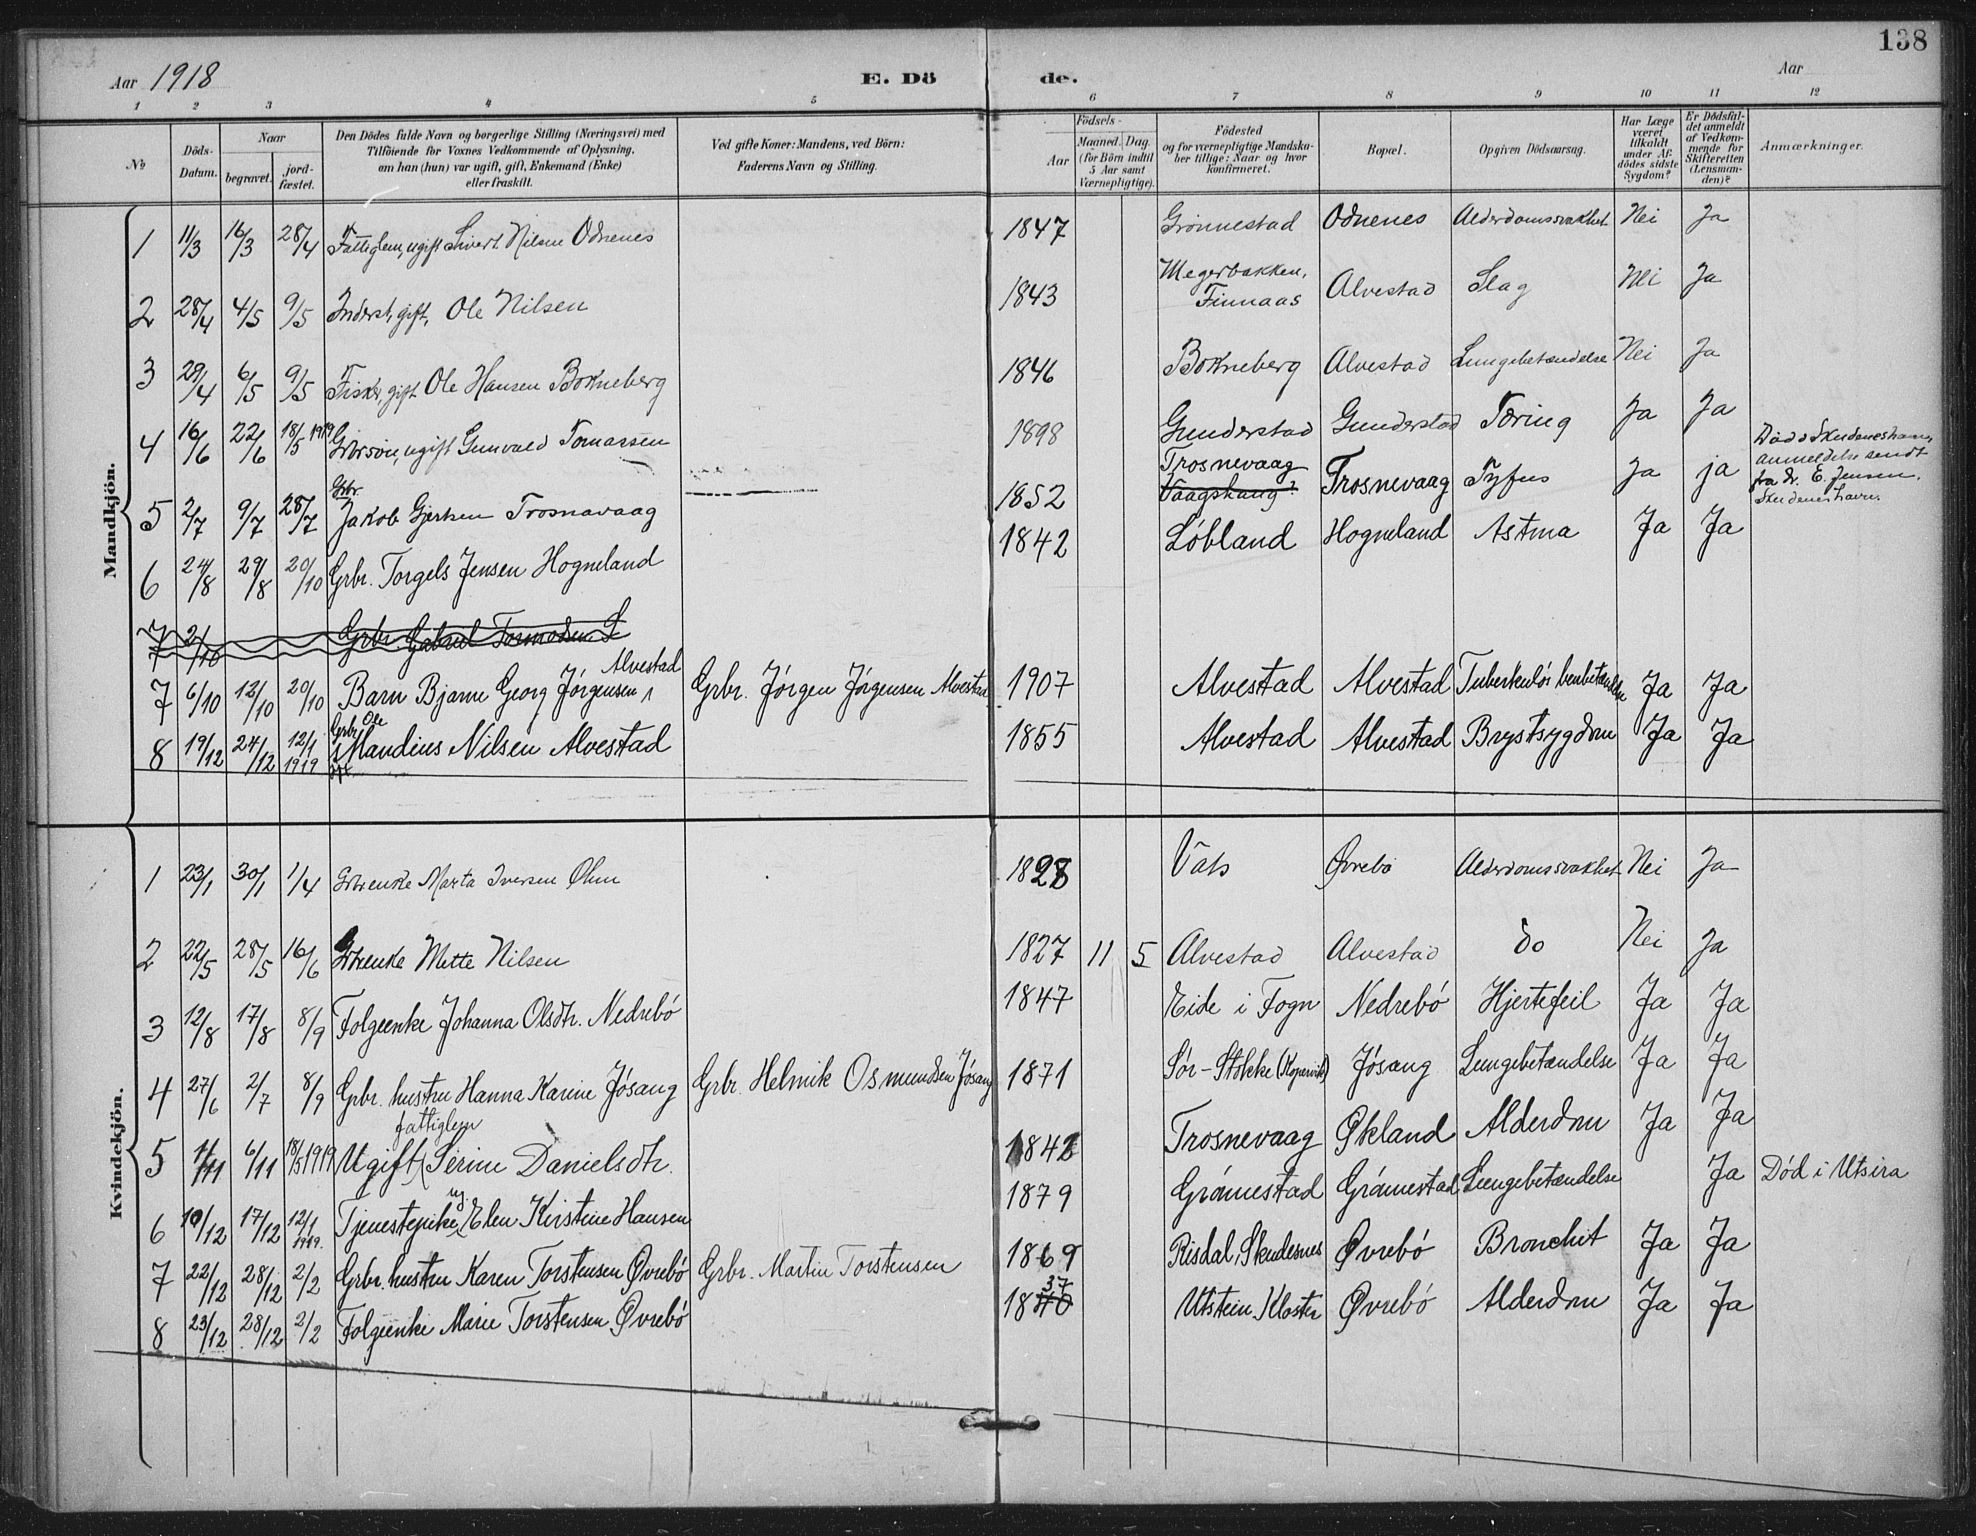 138
Aar 1918 E. Dö de. Aar
1 2 3 4 5 6 7 8 9 10 11 12
No
Döds-Datum.
Naar
begravet.
jord-fæstet.
Den Dödes fulde Navn og borgerlige Stilling (Næringsvei) med
Tilföiende for Voxnes Vedkommende af Oplysning,
om han (hun) var ugift, gift, Enkemand (Enke)
eller fraskilt.
Ved gifte Koner: Mandens, ved Börn:
Faderens Navn og Stilling.
Födsels-
Aar
Maaned. Dag.
(for Börn indtil
5 Aar samt
Værnepligtige).
Födested
og for værnepligtige Mandska-
ber tillige: Naar og hvor
konfirmeret.
Bopæl.
Opgiven Dödsaarsag.
Har Læge
været
tilkaldt
under Af-
dödes sidste
Sygdom?
Er Dödsfal-
det anmeldt
af Vedkom-
mende for
Skifteretten
(Lensman-
den)?
Anmærkninger.
Mandkjön.
1 11/3 16/3 28/4 Fattiglem, ugift Sivert Nilsen Odnenes 1847 Grønnestad Odnenes Alderdomssvakhet Nei Ja
2 28/4 4/5 9/5 Inderst, gift, Ole Nilsen 1843 Megerbakken, Finnaas Alvestad Slag Nei Ja
3 29/4 6/5 9/5 Fisker, gift Ole Hansen Bokneberg 1846 Bokneberg Alvestad Lungebetændelse Nei Ja
4 16/6 22/6 18/5 1919 Grbrsøn, ugift Gunvald Tomassen 1898 Gunderstad Gunderstad Tæring Ja Ja
Død i Skudeneshavn,
anmeldelse sendt
fra dr. E. Jensen,
Skudeneshavn.
5 2/7 9/7 28/7 Grbr. Jakob Gjertsen Trosnavaag 1852 Trosnevaag Trosnevaag Tyfus Ja ja
6 24/8 29/8 20/10 Grbr. Torgels Jensen Hogneland 1842 Løbland Hogneland Astma Ja Ja
7 2/10 Grbr. Gabriel
7 6/10 12/10 20/10 Barn Bjarne Georg Jørgensen Alvestad Grbr. Jørgen Jørgensen Alvestad 1907 Alvestad Alvestad Tuberkuløs benbetændelse Ja Ja
8 19/12 24/12 12/1 1919 Grbr. Ole Mandius Nilsen Alvestad 1855 Alvestad Alvestad Brystsygdom Ja Ja
Kvindekjön.
1 23/1 30/1 1/4 Grbrenke Marta Iversen 1828 Vats Øvrebø Alderdomssvakhet Nei Ja
2 22/5 28/5 16/6 Grbrenke Mette Nilsen 1827 11 5 Alvestad Alvestad do Nei Ja
3 12/8 17/8 8/9 Folgeenke Johanna Olsdtr. Nedrebø 1847 Eide i Fogn Nedrebø Hjertefeil Ja Ja
4 27/6 2/7 8/9 Grbr. hustru Hanna Karine Jøsang Grbr. Helmik Osmundsen Jøsang 1871 Sør-Stokke (Kopervik) Jøsang Lungebetændelse Ja Ja
fattiglem
5 1/11 6/11 18/5 1919 Ugift Serine Danielsdtr. 1842 Trosnevaag Økland Alderdom Ja Ja
6 10/12 17/12 12/1 1919. Tjenestepike ug. Elen Kirstine Hansen 1879 Grønnestad Grønnestad Lungebetændelse Ja Død i Utsira
7 22/12 28/12 2/2 Grbr. hustru Karen Torstensen Øvrebø Grbr. Martin Torstensen 1869 Risdal, Skudesnes Øvrebø Bronchit Ja Ja
8 23/12 28/12 2/2 Folgeenke Marie Torstensen Øvrebø 1840 37 Utstein Kloster Øvrebø Alderdom Ja Ja